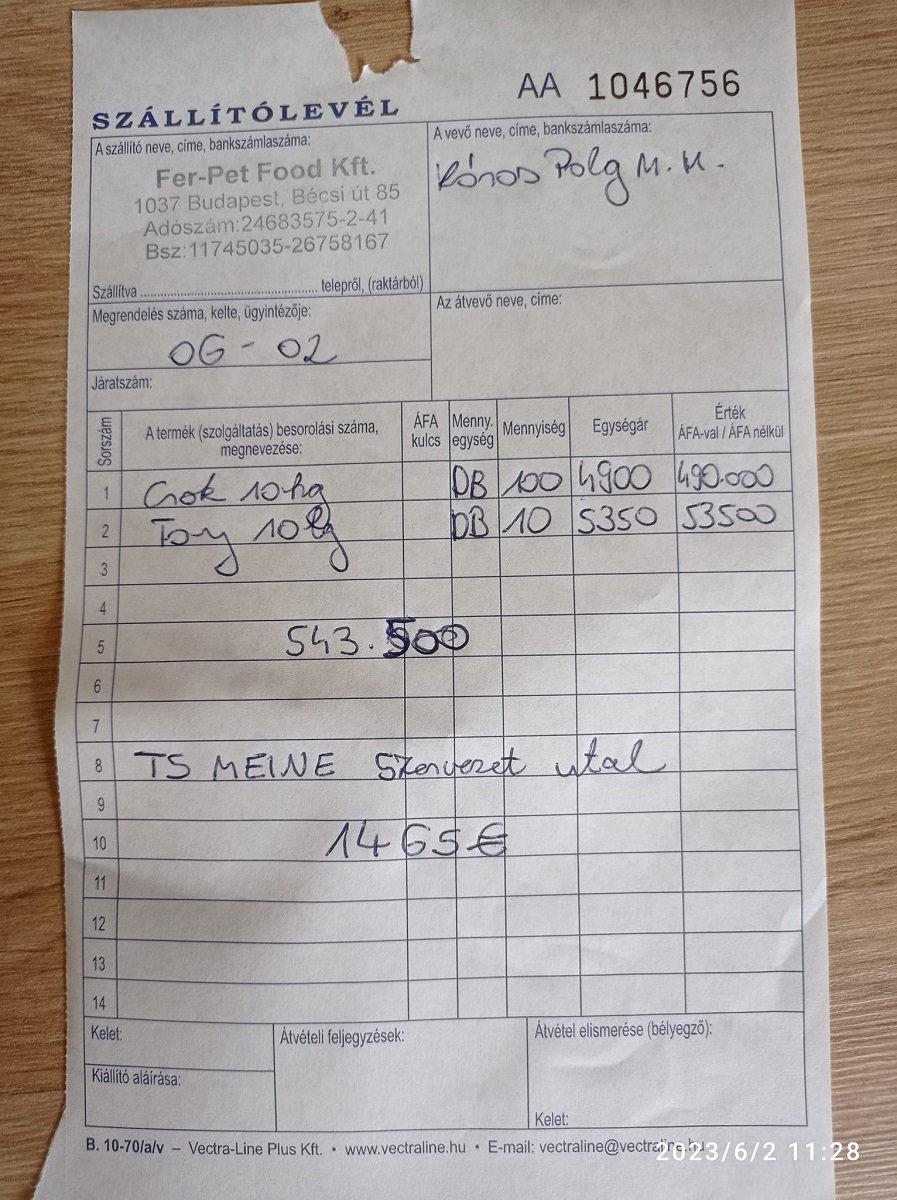 AA 1046756
SZÁLLÍTÓLEVÉL
A szállító neve, címe, bankszámlaszáma:
Fer-Pet Food Kft.
1037 Budapest, Bécsi út 85
Adószám:24683575-2-41
Bsz:11745035-26758167
Szállítva ........................................ telepről, (raktárból)
A vevő neve, címe, bankszámlaszáma:
Polg M. H.
Megrendelés száma, kelte, ügyintézője:
06 - 02
Az átvevő neve, címe:
Járatszám:
Sorszám
A termék (szolgáltatás) besorolási száma, megnevezése:
ÁFA kulcs
Menny. egység
Mennyiség
Egységár
Érték ÁFA-val / ÁFA nélkül
1 10 kg DB 100 4900 490.000
2 10 kg DB 10 5350 53500
3
4
5 543.500
6
7
8 TS MEINE Szervezet utal
9
10 1465€
11
12
13
14
Kelet:
Kiállító aláírása:
Átvételi feljegyzések:
Átvétel elismerése (bélyegző):
Kelet:
B. 10-70/a/v – Vectra-Line Plus Kft. • www.vectraline.hu • E-mail: vectraline@vectraline.hu
2023/6/2 11:28